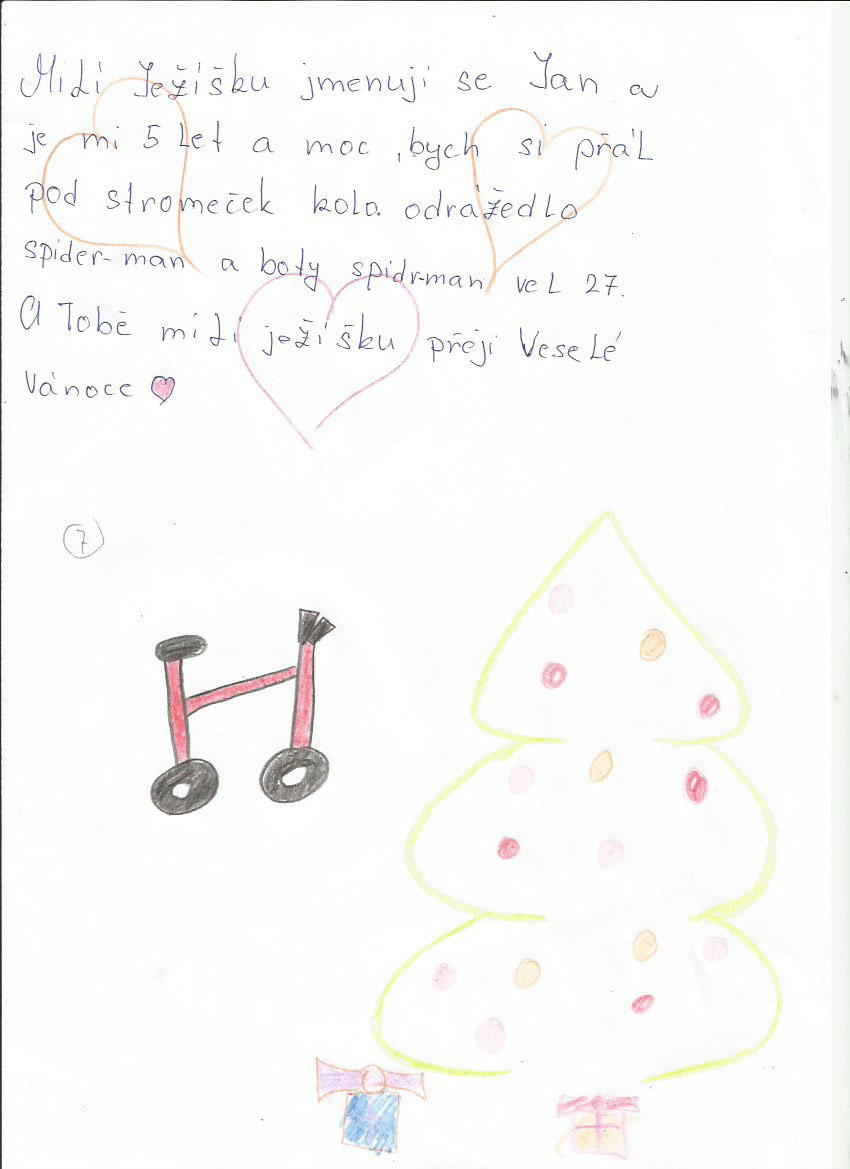 Milí Ježíšku jmenuji se Jan a
je mi 5 Let a moc ,bych si přál
pod stromeček kolo. odrážedlo
spider-man a boty spidr-man vel 27.
A Tobě milí ježíšku přeji Veselé
Vánoce
7